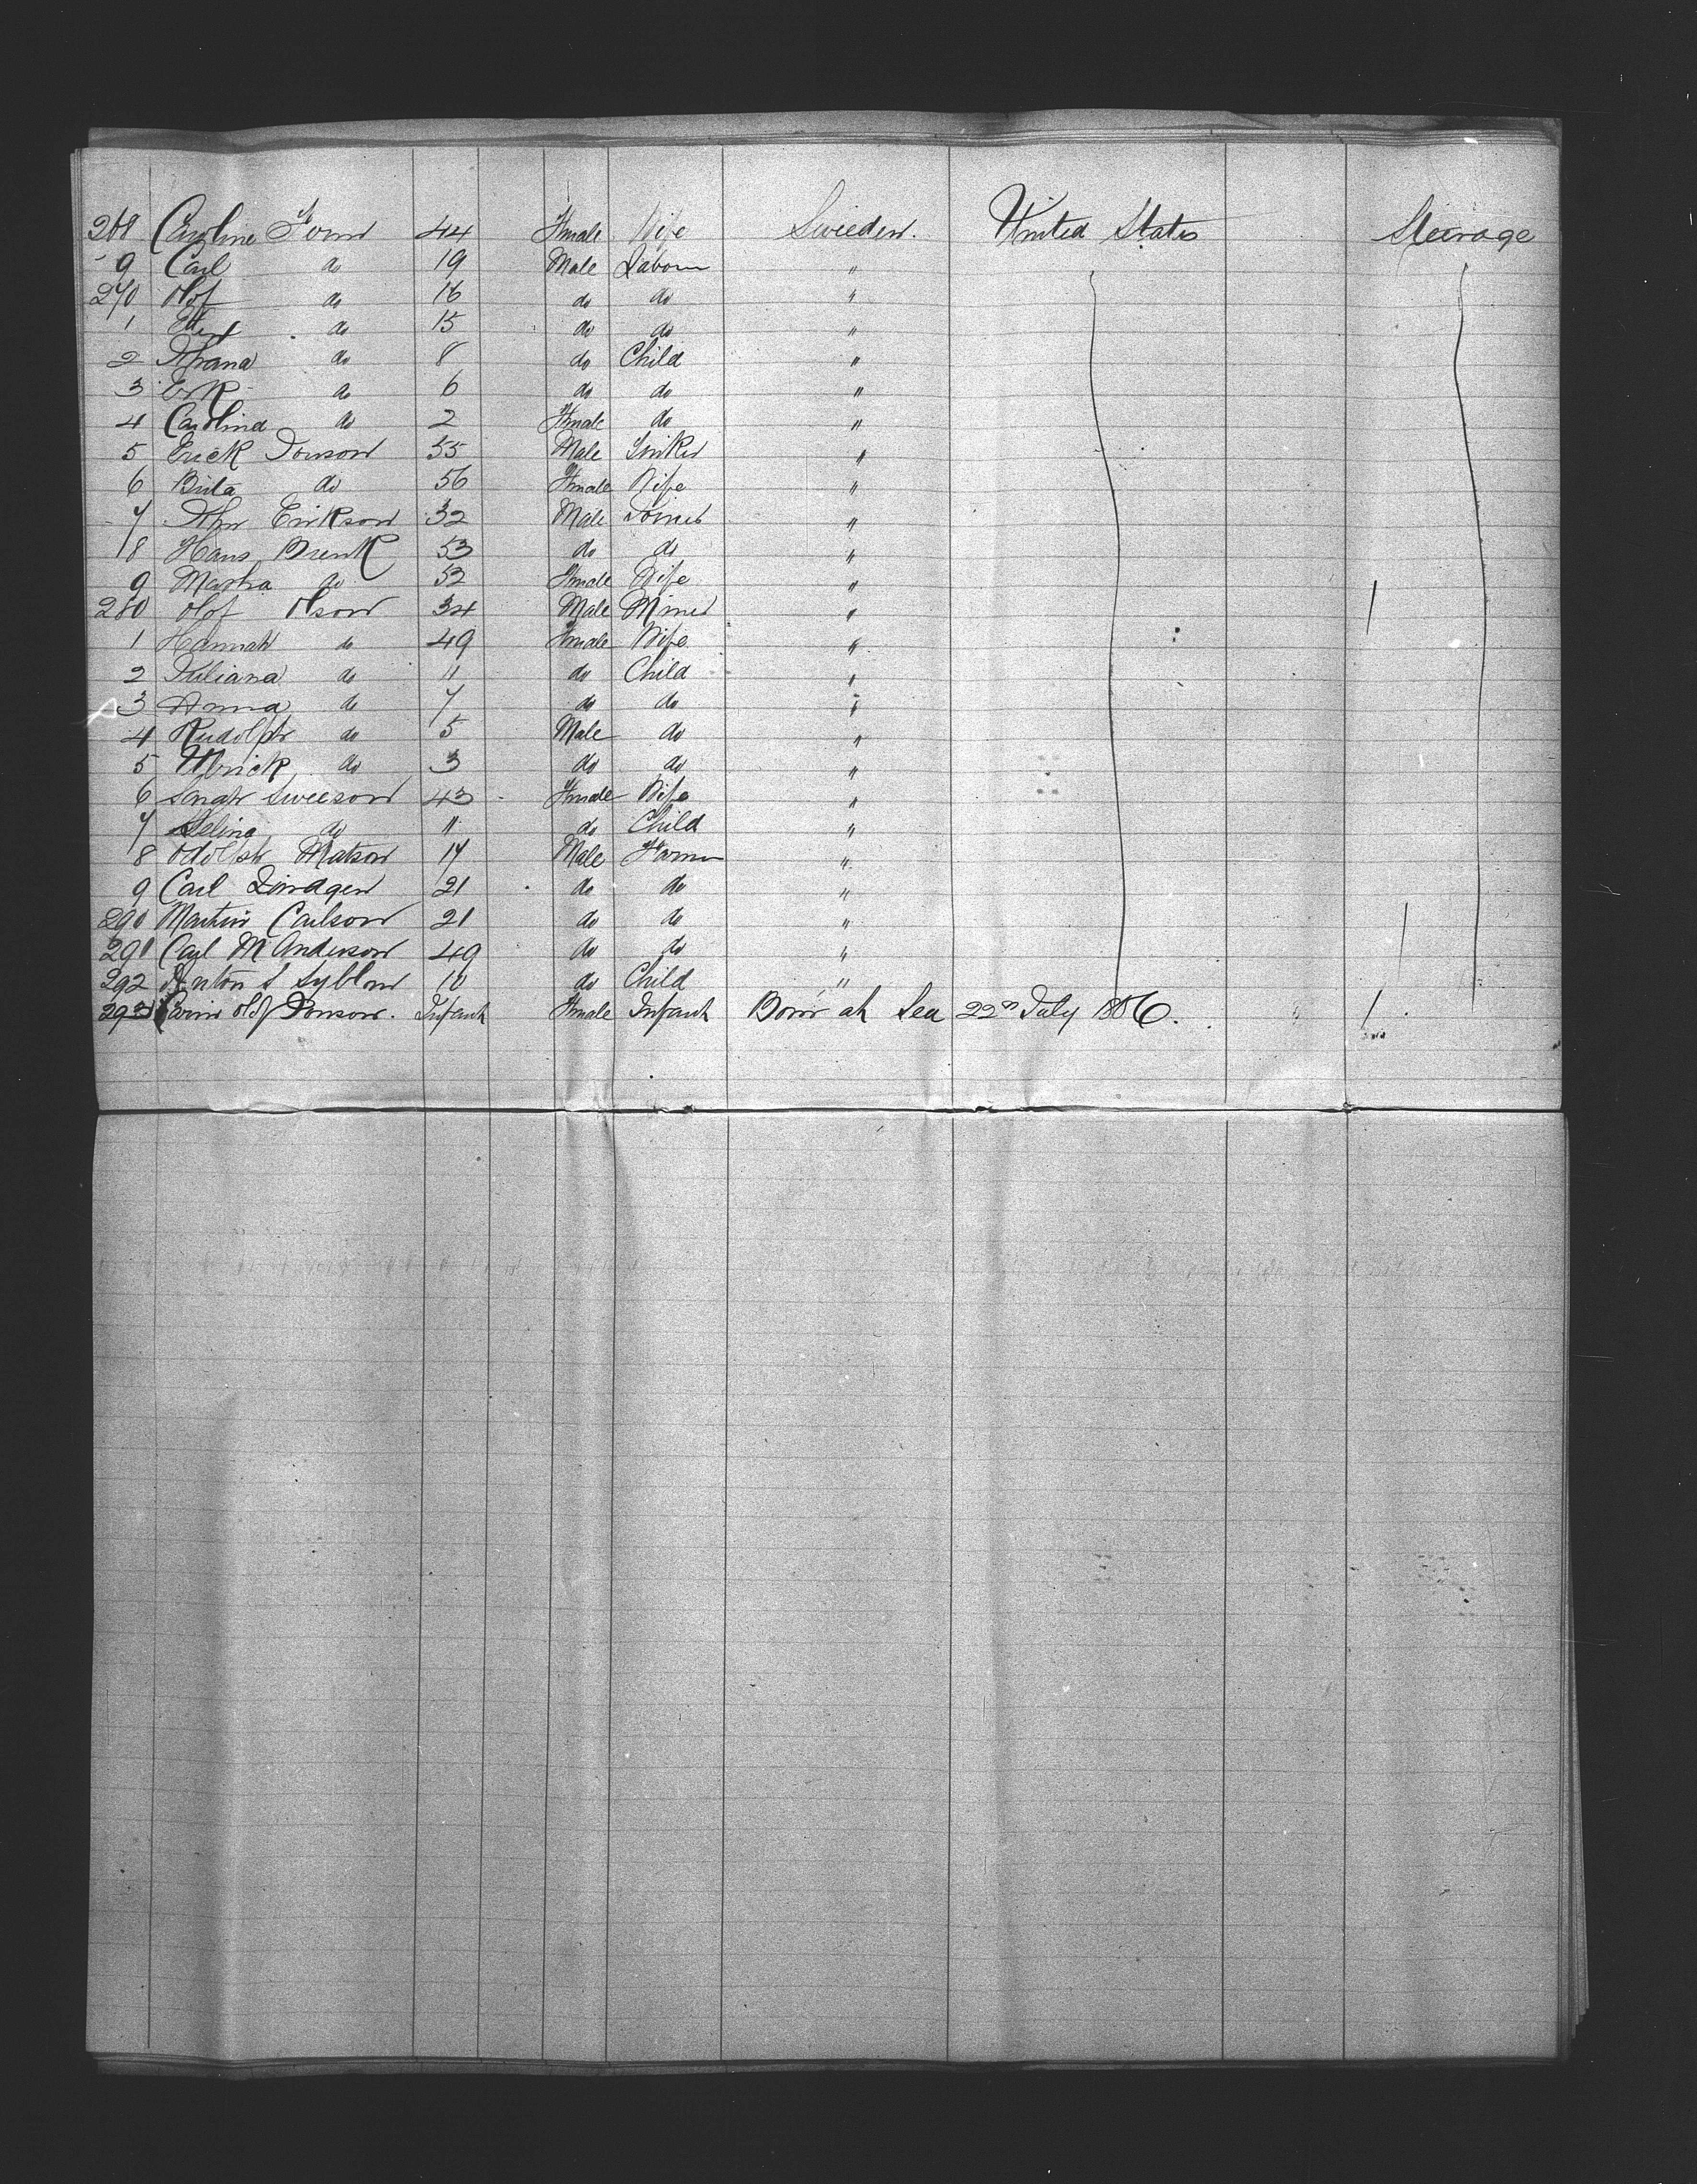 268 Caroline 44 Female Wife Sweeden. United States Steerage
9 Carl do 19 Male Labour "
270 Olof do 16 do do "
1 do 15 do do "
2 do 8 do Child "
3 Erk do 6 do do "
4 Carolina do 2 Female do "
5 Erick Jonson 55 Male "
6 Brita do 56 Female Wife "
7 John Erikson 32 Male "
8 Hans Brenk 53 do do "
9 Martha do 52 Female Wife "
280 Olof Olson 34 Male Miner "
1 Hannah do 49 Female Wife "
2 Juliana do 11 do Child "
3 Anna do 7 do do "
4 Rudolph do 5 Male do "
5 Ulrick do 3 do do "
6 Sarah Sweeson 43 Female Wife "
7 Selina do 11 do Child "
8 Odolph Matson 17 Male Farmer "
9 Carl Lindgen 21 do do "
290 Martin Carlson 21 do do "
291 Carl M Anderson 49 do do "
292 Anton S 10 do Child "
293 Olof Jonson. Infant Female Infant Born at Sea 22nd July 1886.